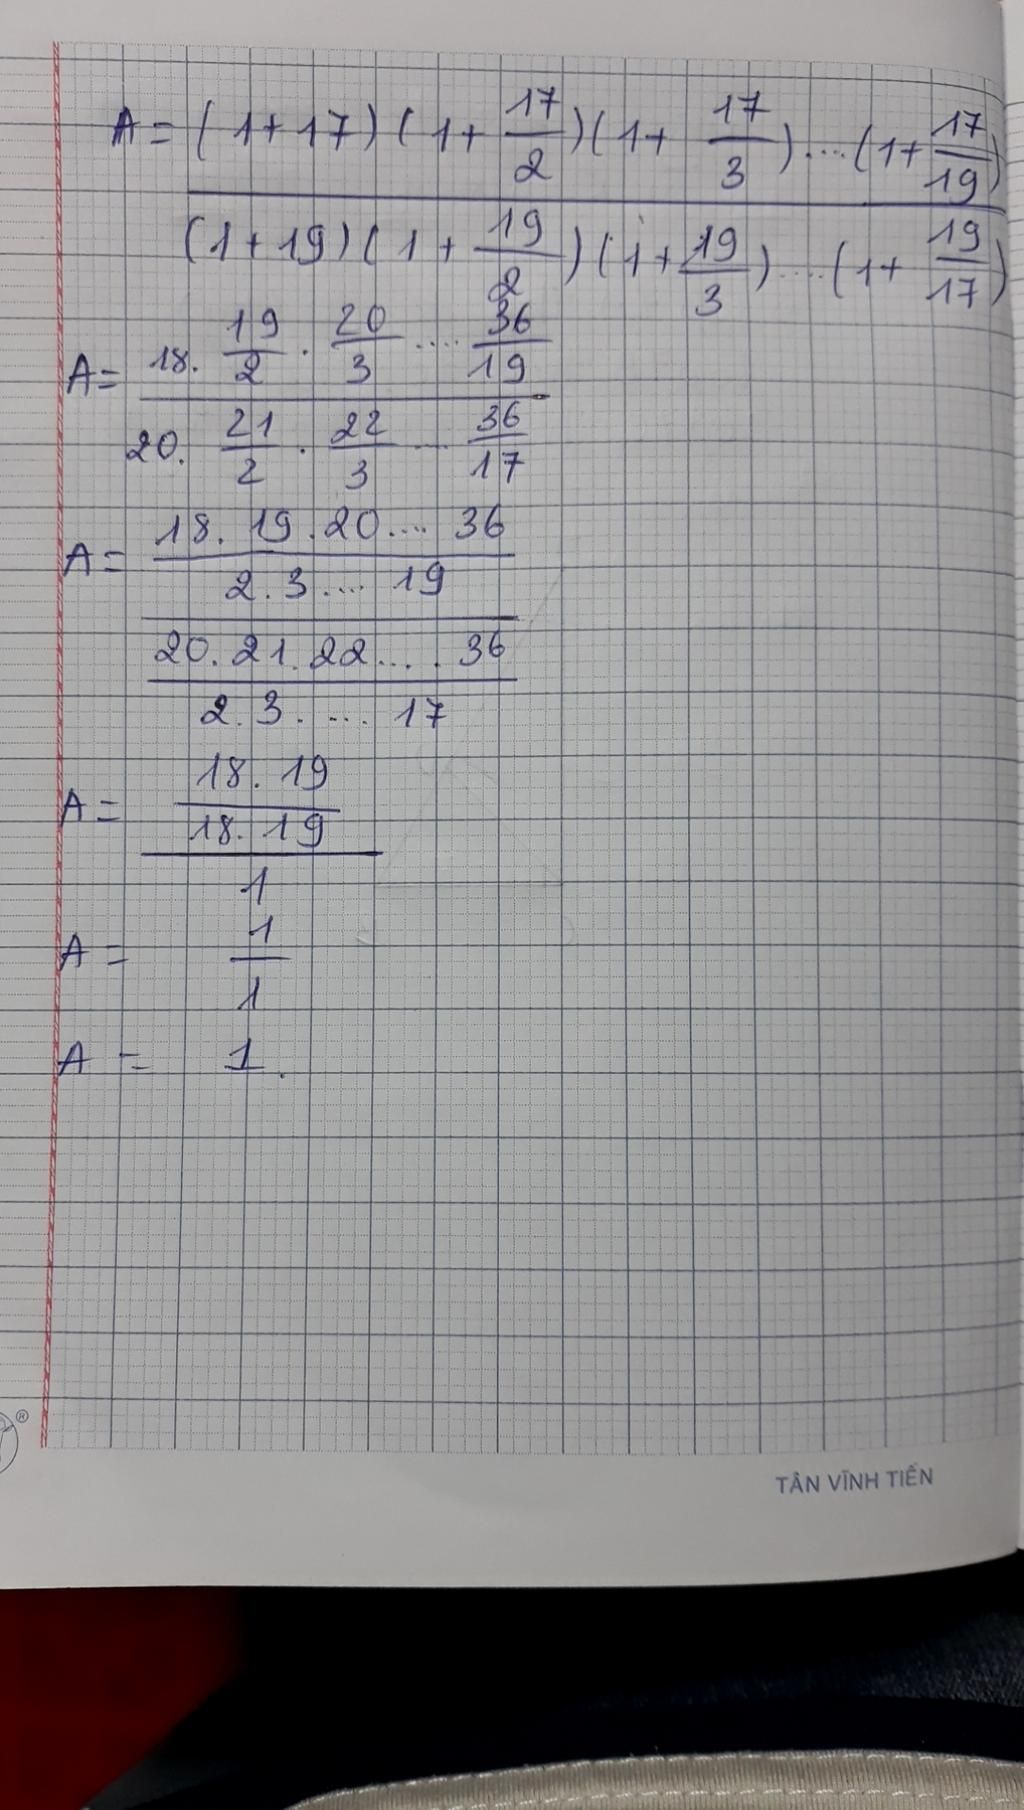 A = (1+17)(1+ 17/2)(1+ 17/3)....(1+ 17/19)
(1+19)(1+ 19/2)(1+ 19/3)....(1+ 19/17)
A = 18. 19/2 . 20/3 .... 36/19
20. 21/2 . 22/3 ... 36/17
A = 18. 19. 20.... 36
2. 3 .... 19
20. 21. 22.... 36
2. 3. .... 17
A = 18. 19
18. 19
1
A = 1
1
A = 1.
®
TÂN VĨNH TIẾN